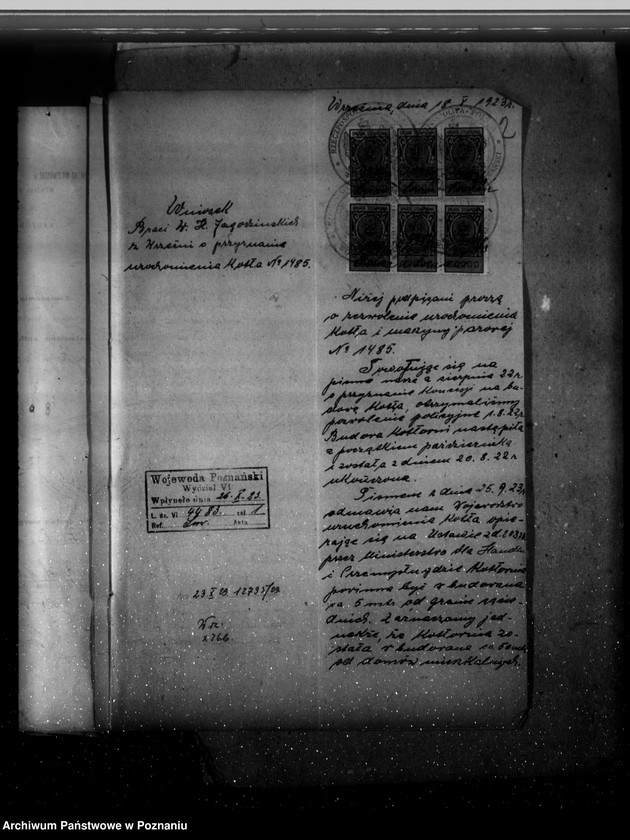 Września, dnia 18 X 1923r.
2
Wniosek
Braci W. K. Jagodzińskich
z Wrześni o przyznanie
uruchomienia Kotła № 1485.
Niżej podpisani proszą
o zezwolenie uruchomienia
Kotła i maszyny parowej
№ 1485.
Powołując się na
pismo nasze z sierpnia 22 r.
o przyznanie Koncesji na bu-
dowę Kotła, otrzymaliśmy
pozwolenie policyjne 1.8.22r.
Budowa Kotłowni nastąpiła
z początkiem października
i została z dniem 20.8.22 r
ukończona.
Pismem z dnia 25.9.23r
odmawia nam Województwo
uruchomienia Kotła opie-
rając się na Ustawie z d.
przez Ministerstwo dla Handlu
i Przemysłu gdzie Kotłownia
powinna być wbudowana
na 5 mtr. od granic sąsie-
dnich. Zaznaczamy jed-
nakże, że Kotłownia zo-
stała wbudowana na
od domów mieszkalnych.
Wojewoda Poznański
Wydział VI
Wpłynęło dnia 26.X.23.
L. dz. VI 4483. zał 1
Ref. Akta
23 X 23 12735/23
Archiwum Państwowe w Poznaniu